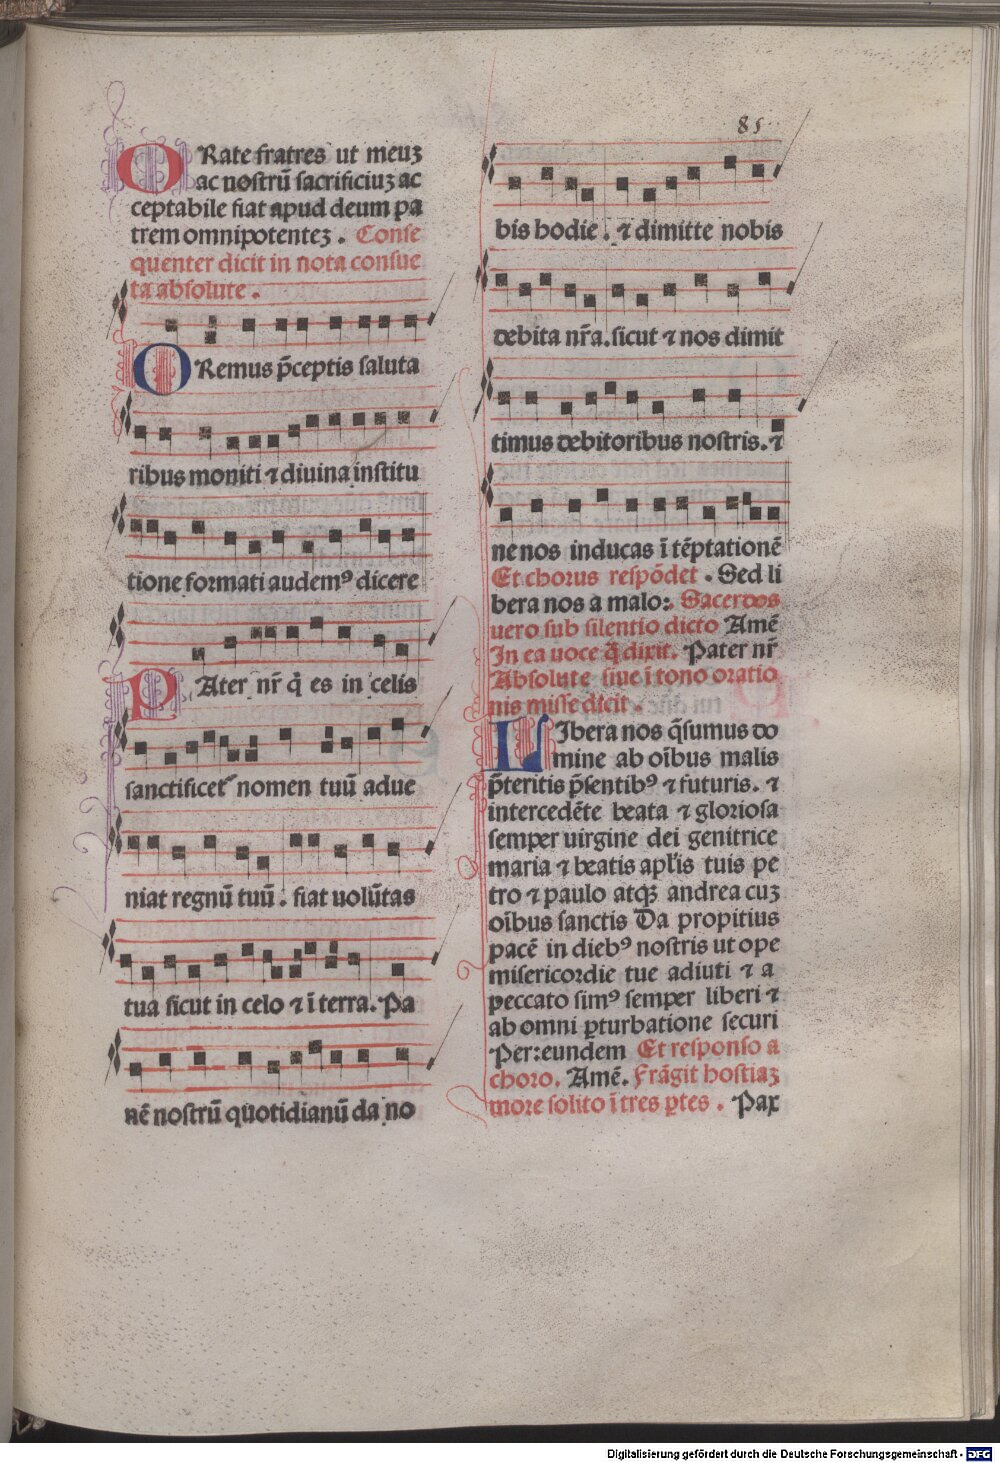 ORate fratres ut meuȝ
ac nostrū sacrificiuȝ ac
ceptabile fiat apud deum pa
trem omnipotenteȝ. Conse
quenter dicit in nota consue
ta absolute.
ORemus p̄ceptis saluta
ribus moniti ⁊ diuina institu
tione formati audemꝰ dicere
PAter nr̄ q̄ es in celis
sanctificet᷑ nomen tuū adue
niat regnū tuū. fiat uolūtas
tua sicut in celo ⁊ ī terra. Pa
nē nostrū quotidianū da no
85
bis hodie. ⁊ dimitte nobis
debita nr̄a. sicut ⁊ nos dimit
timus debitoribus nostris. ⁊
ne nos inducas ī tēptationē
Et chorus respōdet. Sed li
bera nos a malo: Sacerdos
uero sub silentio dicto Amē
In ea uoce q̄ dixit. Pater nr̄
Absolute siue ī tono oratio
nis misse dicit.
LIbera nos q̄sumus do
mine ab oībus malis
p̄teritis p̄sentibꝰ ⁊ futuris. ⁊
intercedēte beata ⁊ gloriosa
semper uirgine dei genitrice
maria ⁊ beatis apl̄is tuis pe
tro ⁊ paulo atqȝ andrea cuȝ
oībus sanctis Da propitius
pacē in diebꝰ nostris ut ope
misericordie tue adiuti ⁊ a
peccato simꝰ semper liberi ⁊
ab omni ꝑturbatione securi
Per:eundem Et responso a
choro. Amē. Frāgit hostiaȝ
more solito ī tres ꝑtes. Pax
Digitalisierung gefördert durch die Deutsche Forschungsgemeinschaft - DFG